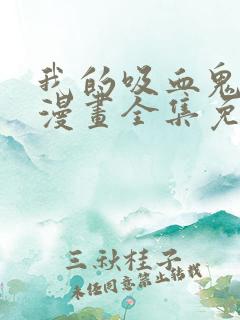 我的吸血鬼
漫畫全集免
三秋桂子
未经同意禁止转载